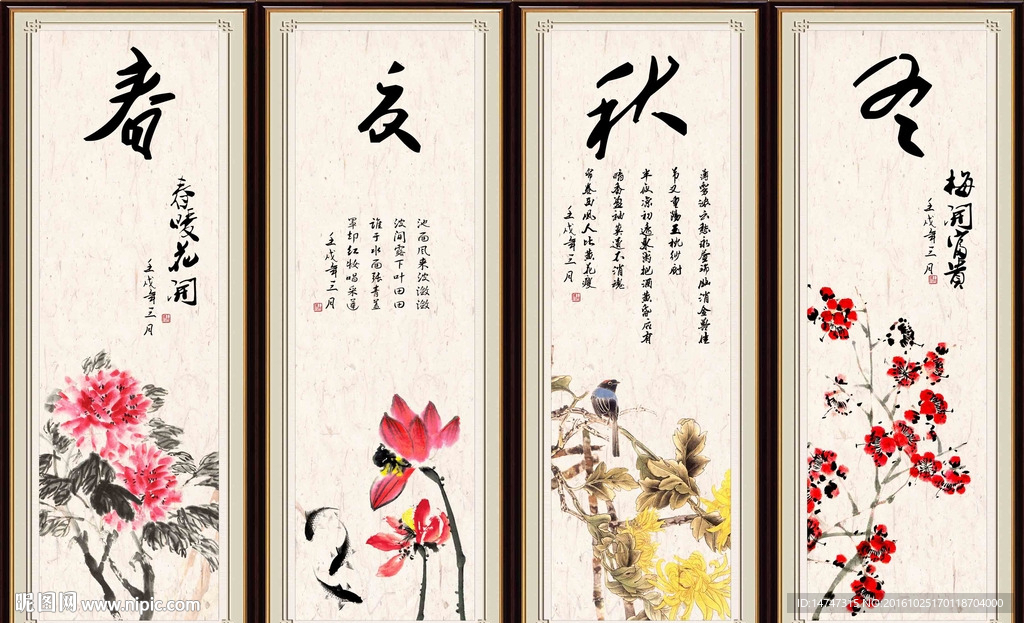 春
春暖花開
壬戌年三月
夏
池面風来波潋潋
波间露下叶田田
谁于水面张青蓋
罩却红妆唱采莲
壬戌年三月
秋
薄雾浓云愁永昼瑞脑消金兽佳
节又重陽玉枕纱厨
半夜凉初透東篱把酒黄昏后有
暗香盈袖莫道不消魂
帘卷西风人比黄花瘦
壬戌年三月
冬
梅開富貴
壬戌年三月
昵图网 www.nipic.com
ID:14747315 NO:20161025170118704000